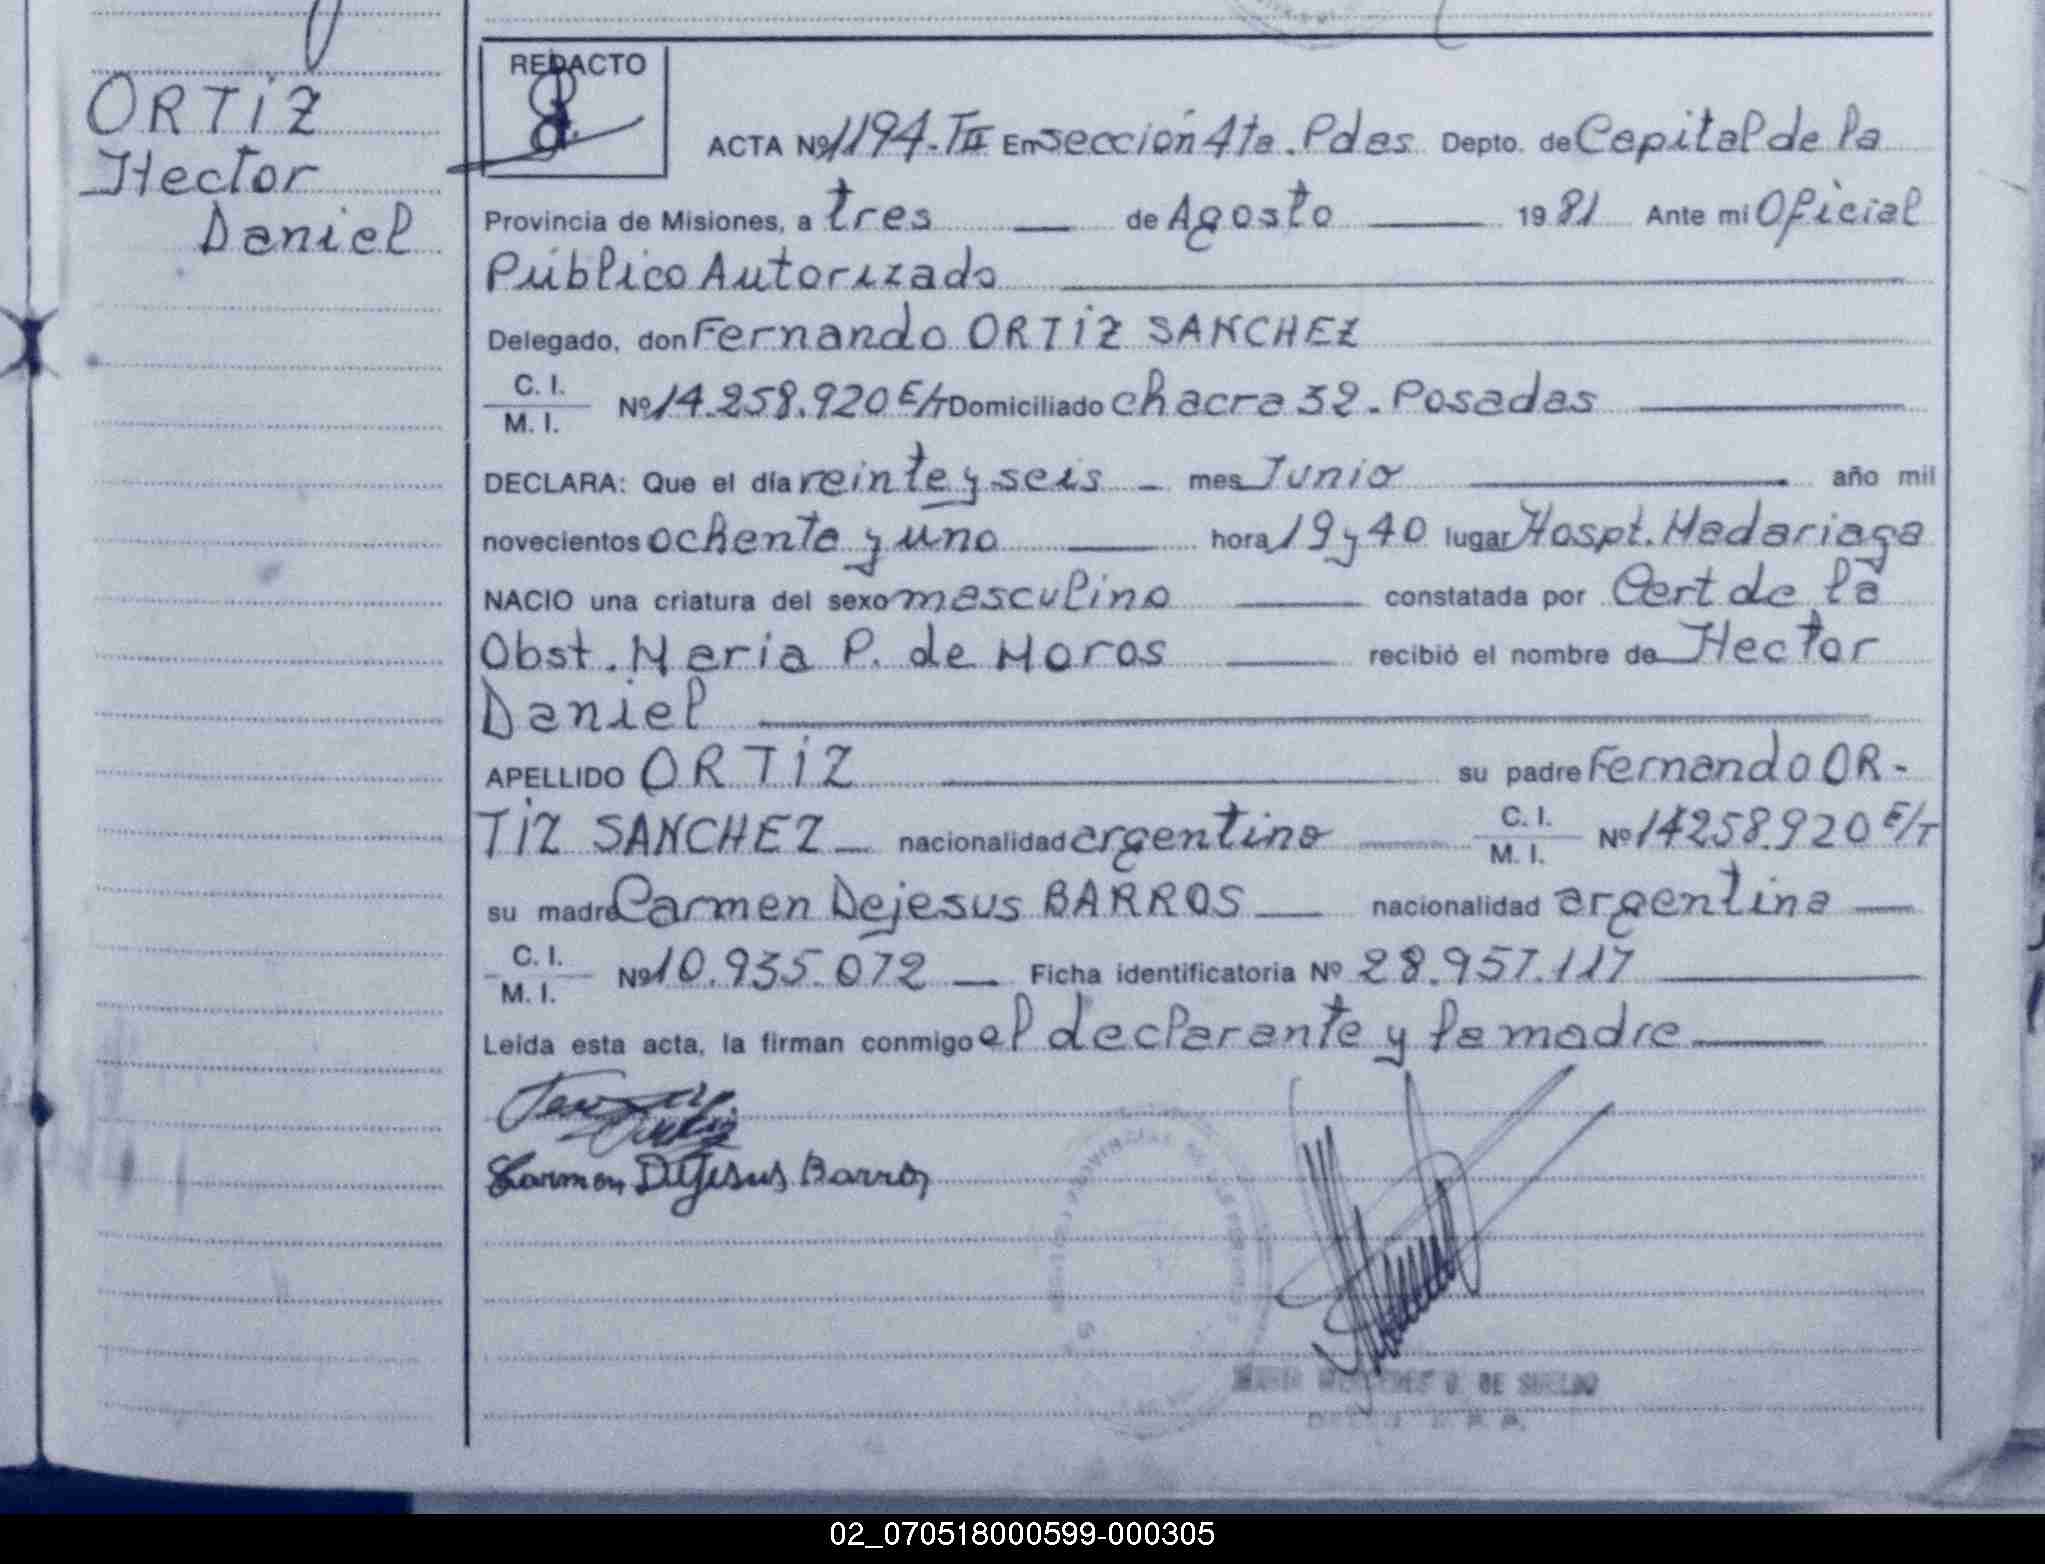 ORTIZ
Hector
Daniel
REDACTO
ACTA Nº 1194-TII En sección 4ta. Pdas Depto. de Capital de la
Provincia de Misiones, a tres de Agosto 1981 Ante mi Oficial
Público Autorizado
Delegado, don Fernando ORTIZ SANCHEZ
C. I.
M. I. Nº 14.258.920 E/T Domiciliado chacra 32. Posadas
DECLARA: Que el día veinte y seis - mes Junio año mil
novecientos ochenta y uno hora 19 y 40 lugar Hospt. Madariaga
NACIO una criatura del sexo masculino constatada por Cert de la
Obst. Maria P. de Moros recibió el nombre de Hector
Daniel
APELLIDO ORTIZ su padre Fernando OR-
TIZ SANCHEZ nacionalidad argentino C. I. M. I. Nº 14258.920 E/T
su madre Carmen Dejesus BARROS nacionalidad argentina
C. I.
M. I. Nº 10.935.072 Ficha identificatoria Nº 28.957.117
Leida esta acta, la firman conmigo el declarante y la madre
Ortiz
Carmen Dejesus Barros
DE SUELDO
02_070518000599-000305